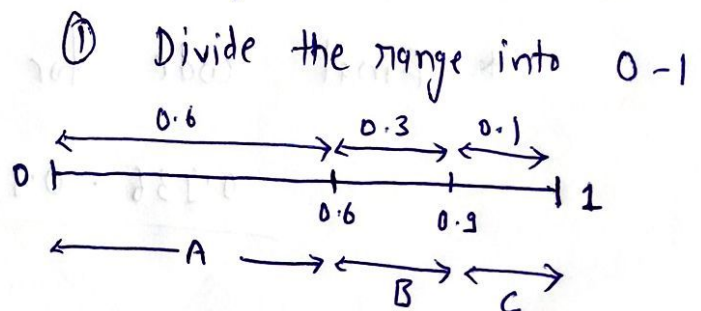 ① Divide the range into 0-1
0.6 0.3 0.1
0 1
0.6 0.9
A B C